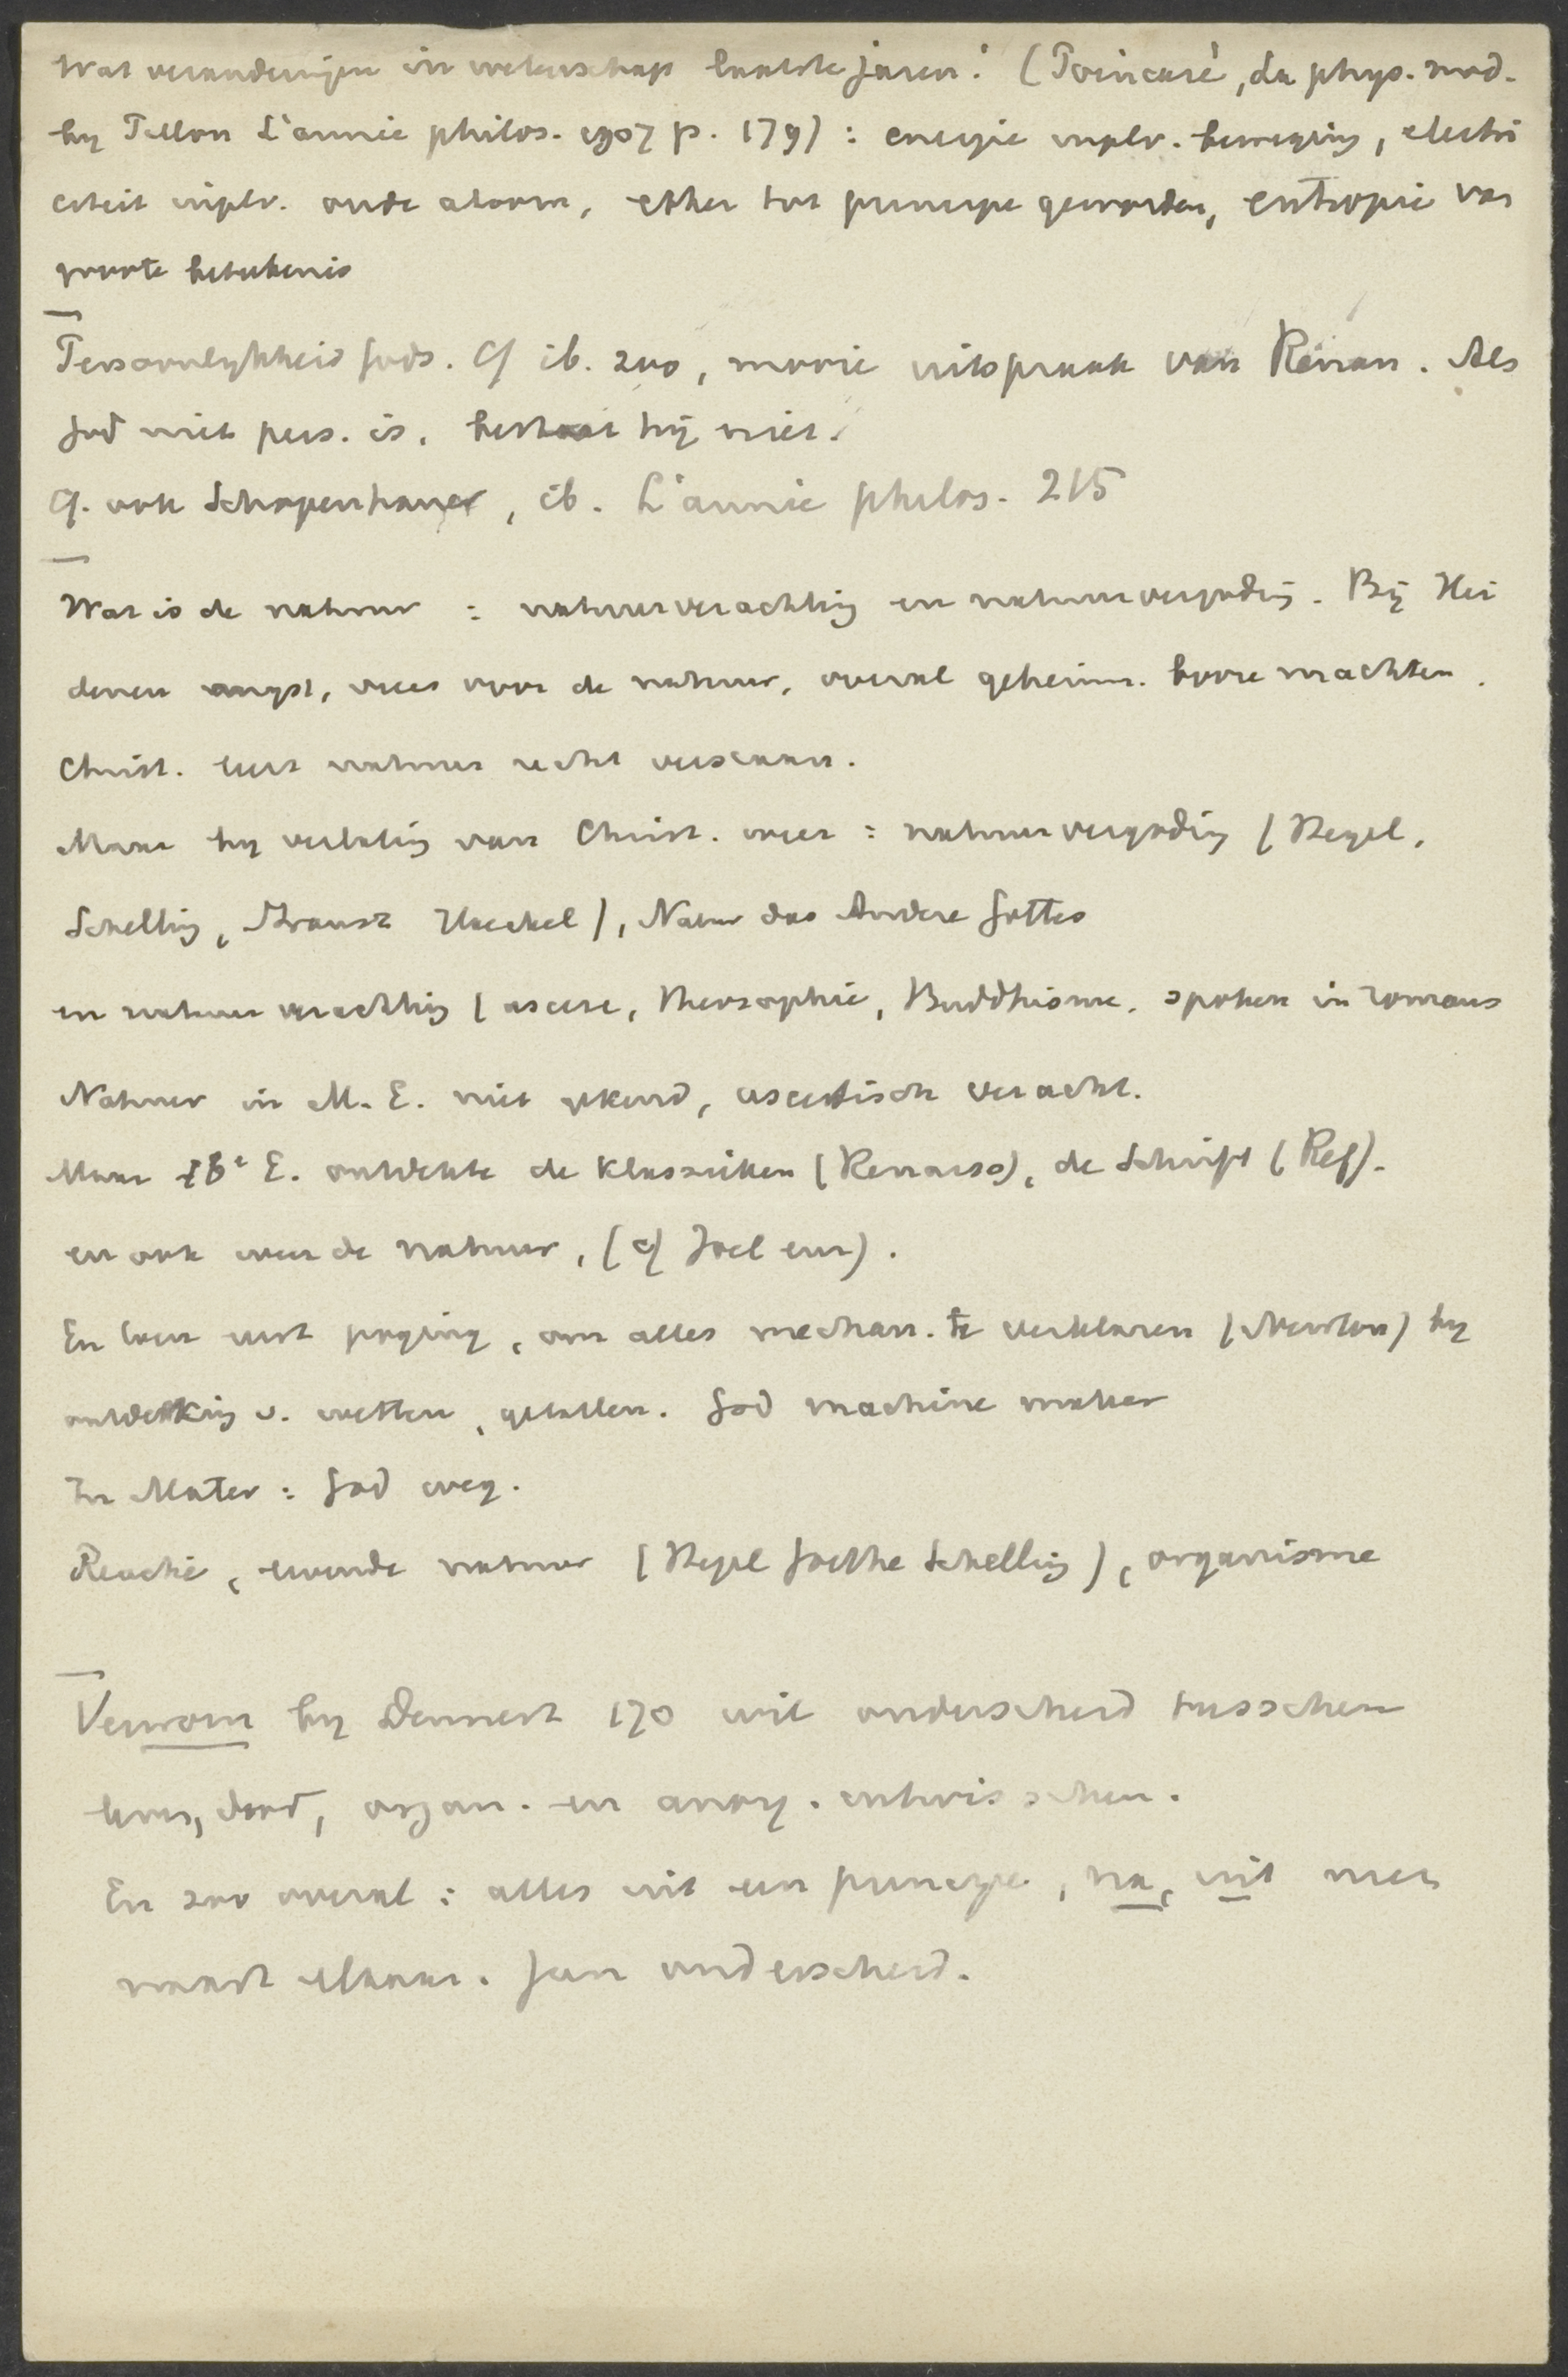 Wat veranderingen in wetenschap laatste jaren! (Poincaré, la phys. mod.
by Pillon L'année philos. 1907 p. 179): energie inplv. beweging, electri
citeit inplv. oude atoom, ether tot principe geworden, entropie van
groote beteekenis
Persoonlykheid Gods. Cf ib. 200, mooie uitspraak van Renan. Als
God niet pers. is, bestaat hij niet.
Cf. ook Schopenhauer, ib. L'année philos. 215
Wat is de natuur : natuurverachting en natuurvergoding. Bij Hei
denen angst, vrees voor de natuur, overal geheimz. booze machten.
Christ. leert natuur recht verstaan.
Maar by verlating van Christ. weer : natuurvergoding (Hegel,
Schelling, Strausz Haeckel), Natur das Andere Gottes
en natuurverachting (ascese, Theosophie, Buddhisme. spoken in romans
Natuur in M. E. niet gekend, ascetisch veracht.
Maar 16e E. ontdekte de Klassieken (Renaiss), de Schrift (Ref).
en ook weer de natuur, (cf Joel enz).
En toen eerst poging, om alles mechan. te verklaren (Newton) by
ontdekking v. wetten, getallen. God machine maker
In Mater : God weg.
Reactie, levende natuur (Hegel Goethe Schelling), organisme
Verworn by Dennert 170 wil onderscheid tusschen
leven, dood, organ. en anorg. uitwisschen.
En zoo overal : alles uit een principe, na, uit niet
naast elkaar. Geen onderscheid.